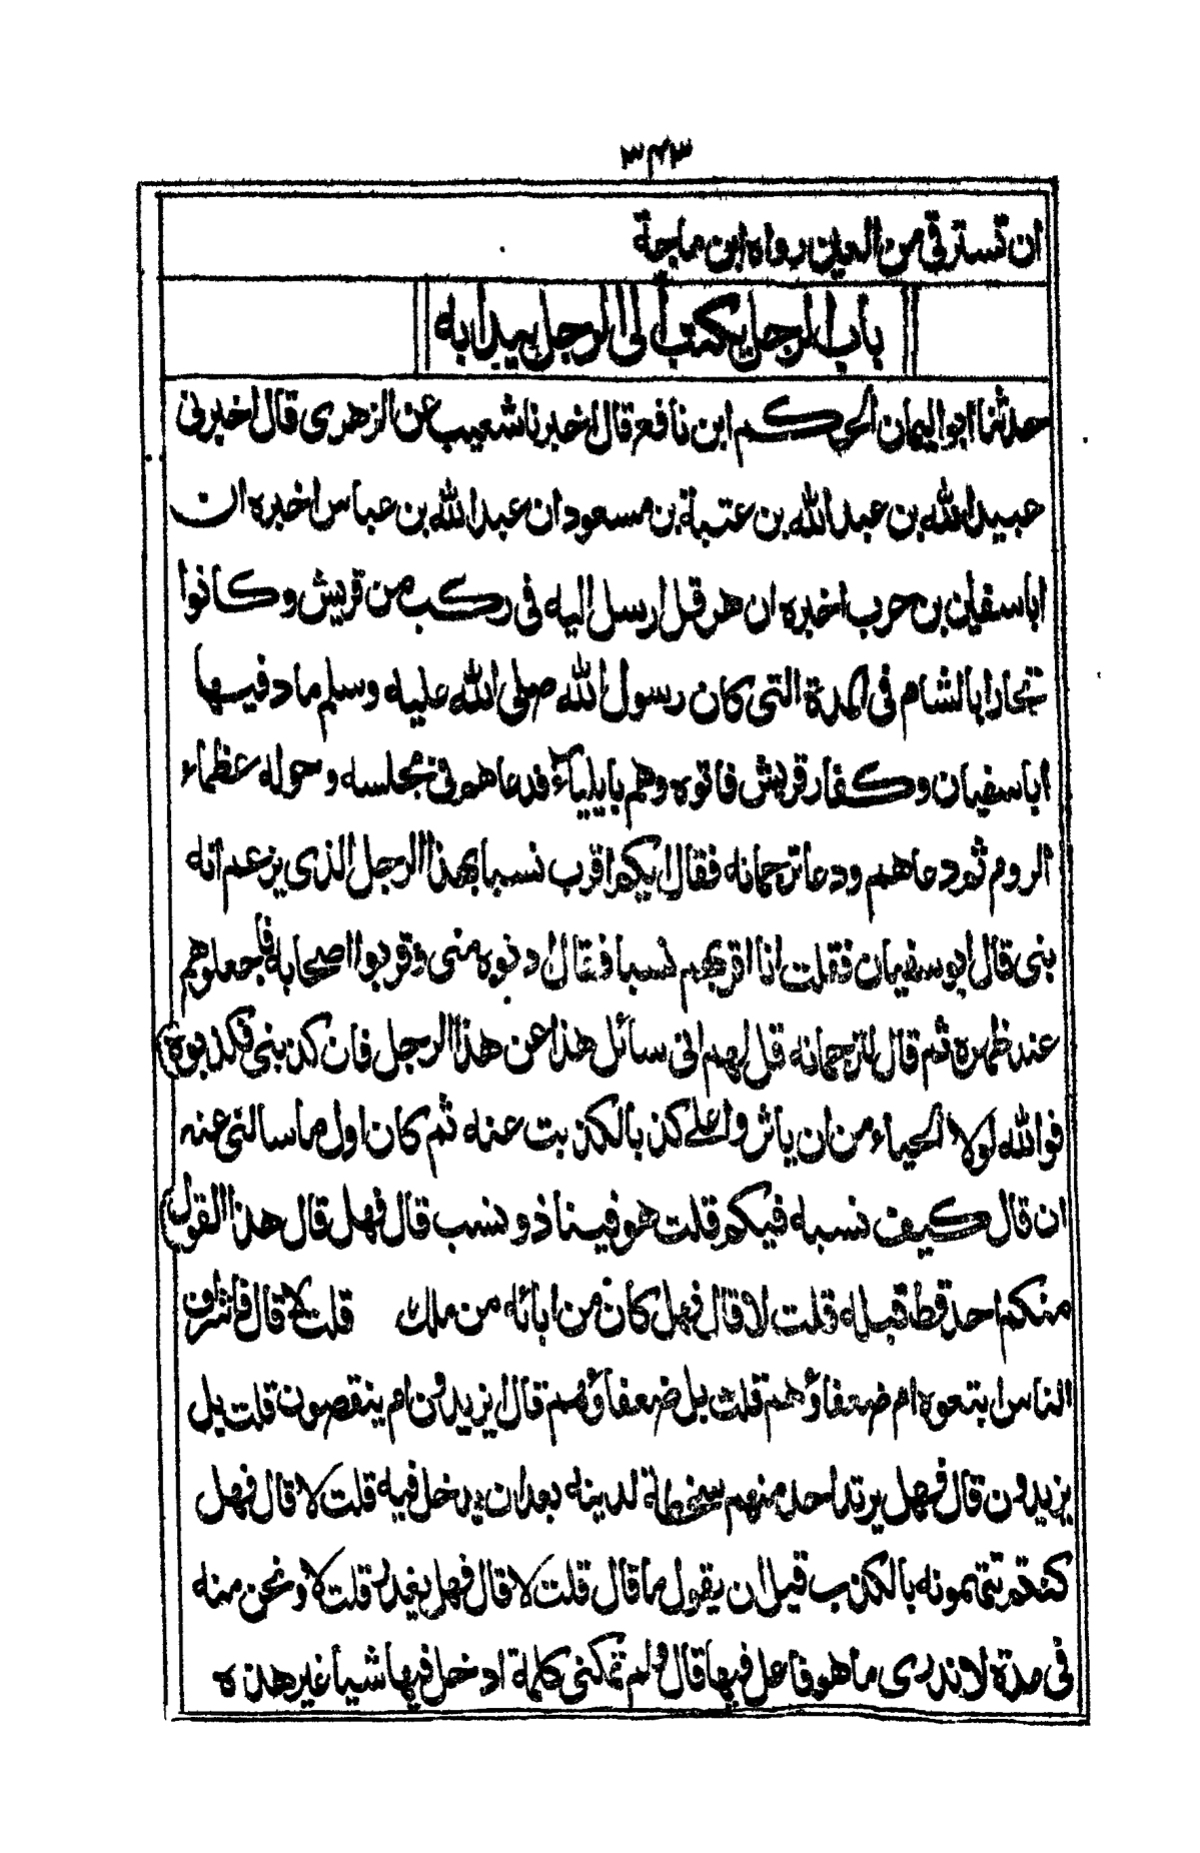 ٣٤٣
ان تسترقى من العين رواه ابن ماجة
باب الرجل يكتب الى الرجل يبدا به
حدثنا ابو اليمان الحكم ابن نافع قال اخبرنا شعيب عن الزهرى قال اخبرنى
عبيد الله بن عبد الله بن عتبة بن مسعود ان عبد الله بن عباس اخبره ان
ابا سفين بن حرب اخبره ان هرقل ارسل اليه فى ركب من قريش وكانوا
تجارا بالشام فى المدة التى كان رسول الله صلى الله عليه وسلم ماد فيها
ابا سفيان وكفار قريش فاتوه وهم بايلياء فدعاهم فى مجلسه وحوله عظماء
الروم ثم دعاهم ودعا ترجمانه فقال ايكم اقرب نسبا بهذا الرجل الذى يزعم انه
نبى قال ابو سفيان فقلت انا اقربهم نسبا فقال ادنوه منى وقربوا اصحابه فاجعلوهم
عند ظهره ثم قال لترجمانه قل لهم انى سائل هذا عن هذا الرجل فان كذبنى فكذبوه
فو الله لولا الحياء من ان ياثروا على كذبا لكذبت عنه ثم كان اول ما سالنى عنه
ان قال كيف نسبه فيكم قلت هو فينا ذو نسب قال فهل قال هذا القول
منكم احد قط قبله قلت لا قال فهل كان من ابائه من ملك قلت لا قال فاشراف
الناس اتبعوه ام ضعفاؤهم قلت بل ضعفاؤهم قال ايزيدون ام ينقصون قلت بل
يزيدون قال فهل يرتد احد منهم سخطة لدينه بعد ان يدخل فيه قلت لا قال فهل
كنتم تتهمونه بالكذب قبل ان يقول ما قال قلت لا قال فهل يغدر قلت لا ونحن منه
فى مدة لا ندرى ما هو فاعل فيها قال ولم تمكنى كلمة ادخل فيها شيأ غير هذه